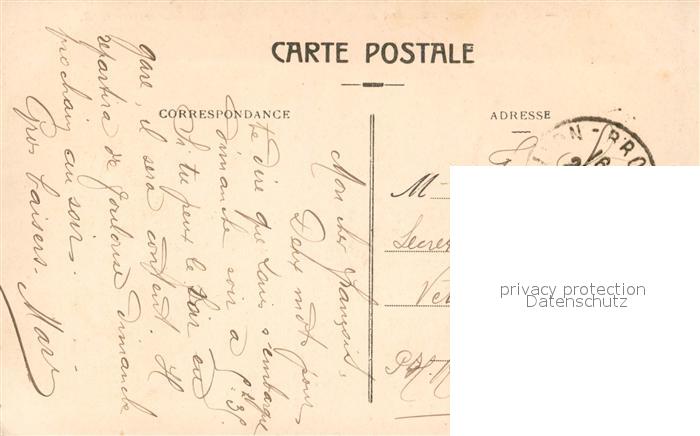 CARTE POSTALE
CORRESPONDANCE
ADRESSE
Mon cher François,
Deux mots pour
te dire que Louis s'embarque
dimanche soir à
Si tu peux le voir
gare, il sera content. Il
repartira de Toulouse dimanche
prochain au soir.
Gros baisers. Marie
ON - PRO
16
M
privacy protection
Datenschutz